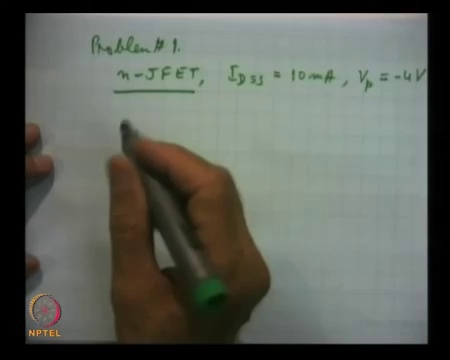 Problem # 1.
n-JFET, I_DSS = 10mA, V_p = -4V
NPTEL